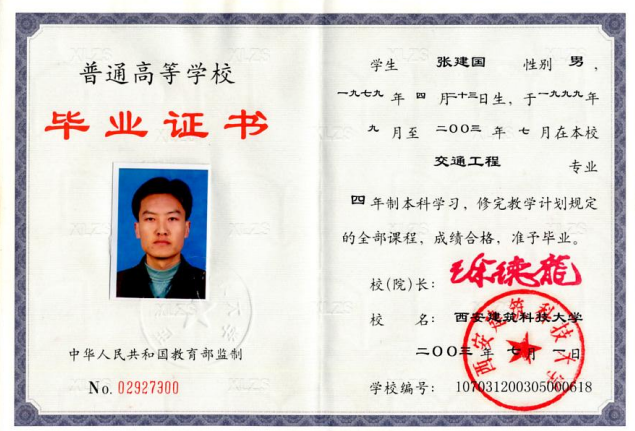 普通高等学校
毕业证书
中华人民共和国教育部监制
No. 02927300
学生 张建国 性别 男，
一九七九年 四 月二十三日生，于一九九九年
九 月至 二〇〇三年 七 月在本校
交通工程 专业
四年制本科学习，修完教学计划规定
的全部课程，成绩合格，准予毕业。
校(院)长： 徐德龙
校 名： 西安建筑科技大学
二〇〇三 年 七月 一日
学校编号： 107031200305000618
西安建筑科技大学